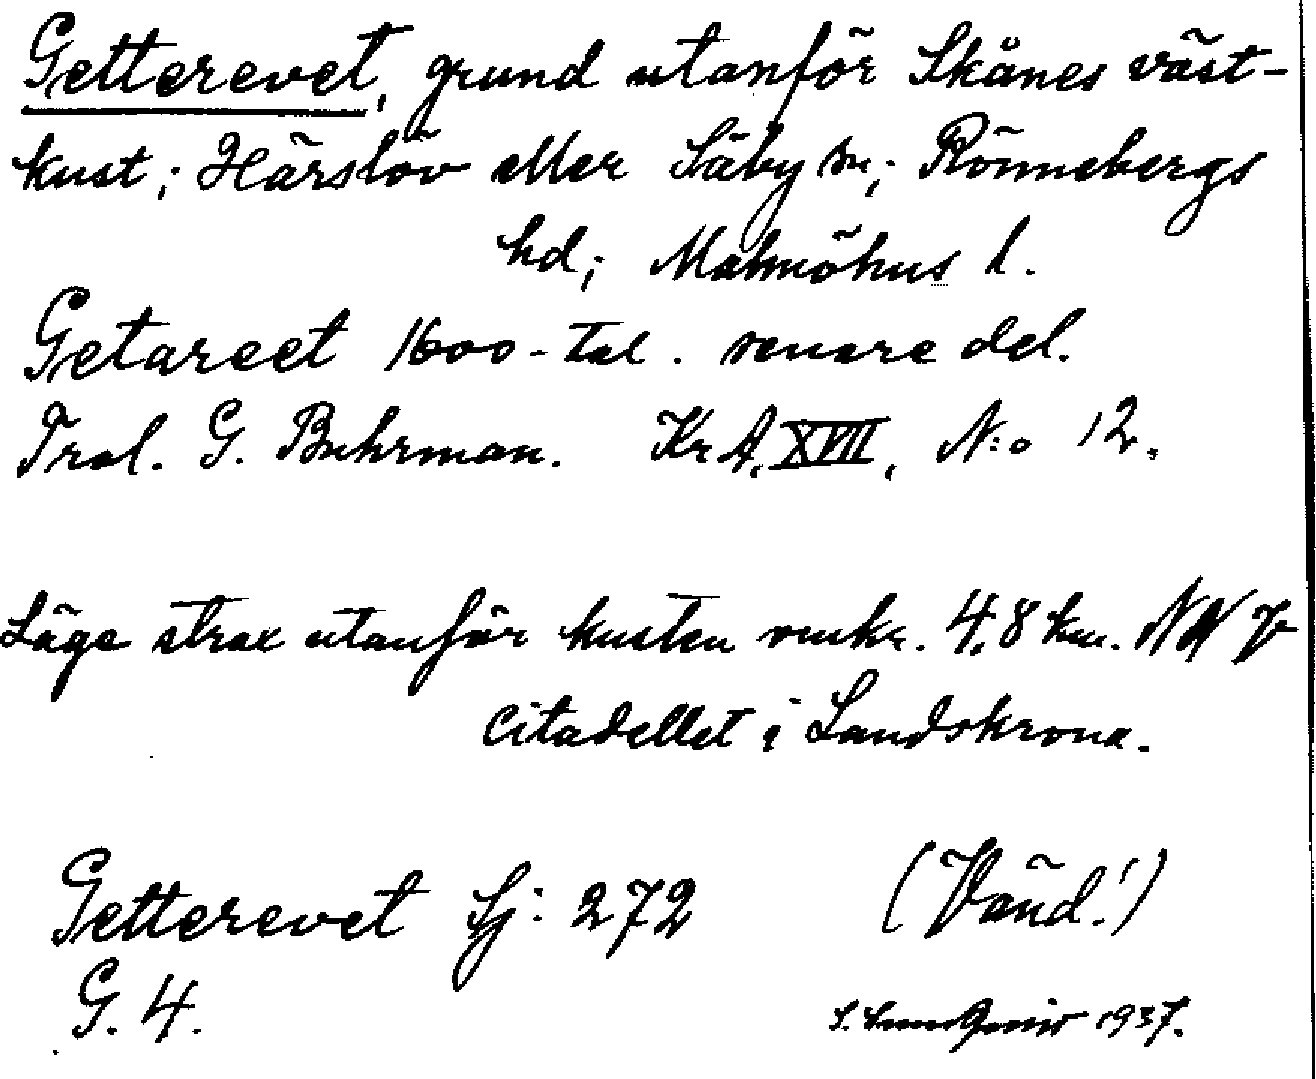 Getterevet, grund utanför Skånes väst-
kust; Härslöv eller Säby sn; Rönnebergs
hd; Malmöhus l.
Getareet 1600-tal. senare del.
Trol. G. Buhrman. KrA, XVII, N:o 12.
Läge strax utanför kusten omkr. 4,8 km. NNV
citadellet i Landskrona.
Getterevet Sj: 272 (Vänd!)
G. 4.
1937.